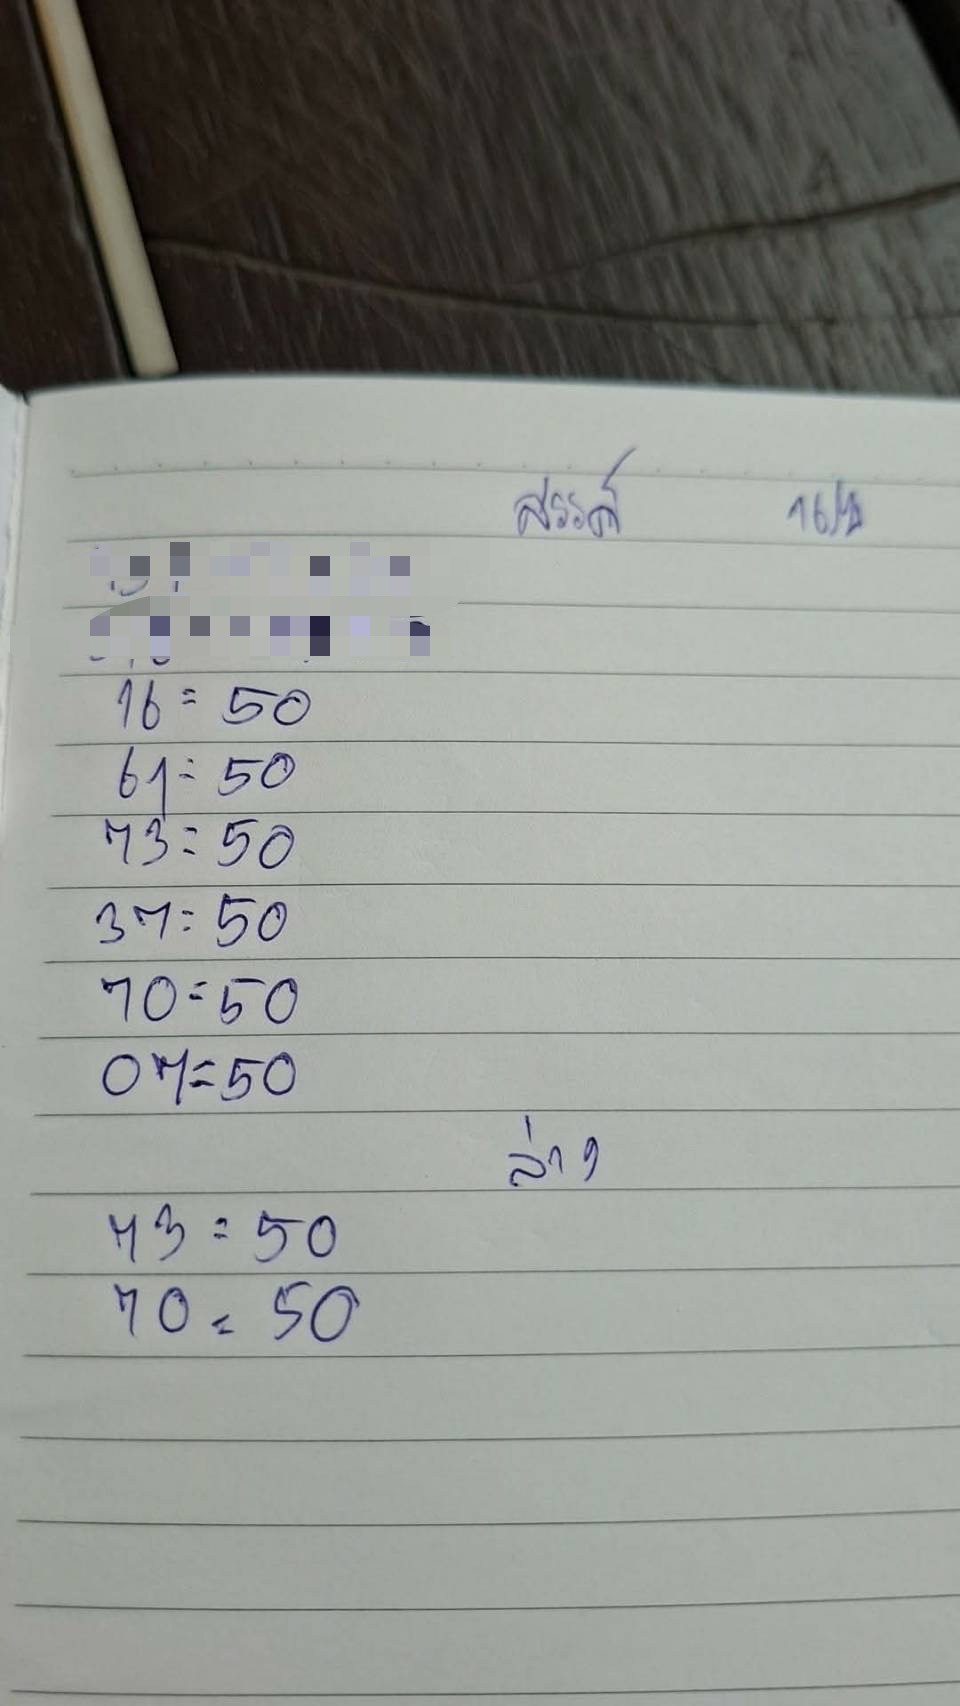 สรรค์ 16/1
16 = 50
61 = 50
73 = 50
37 = 50
70 = 50
07 = 50
ล่าง
73 = 50
70 = 50